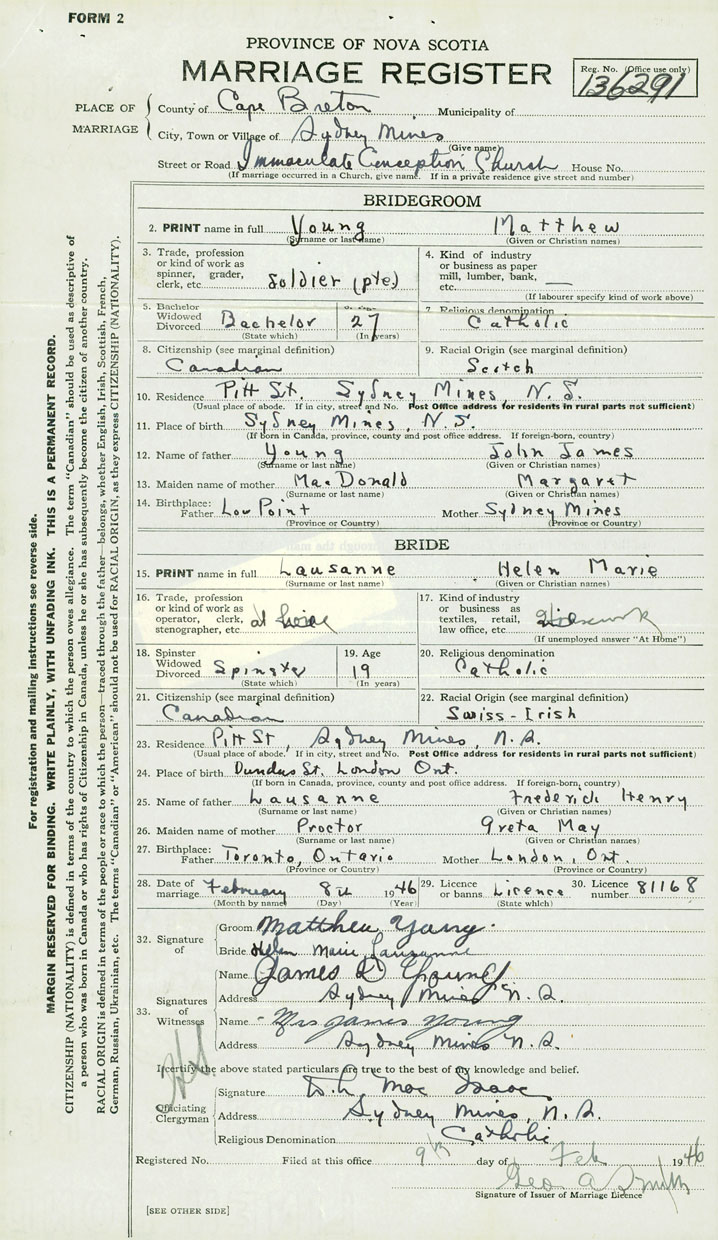 FORM 2
PROVINCE OF NOVA SCOTIA
MARRIAGE REGISTER
Reg. No. (Office use only)
136291
PLACE OF MARRIAGE
County of Cape Breton Municipality of
City, Town or Village of Sydney Mines
(Give name)
Street or Road Immaculate Conception Church House No.
(If marriage occurred in a Church, give name. If in a private residence give street and number)
BRIDEGROOM
2. PRINT name in full Young Matthew
(Surname or last name) (Given or Christian names)
3. Trade, profession or kind of work as spinner, grader, clerk, etc. Soldier (pte)
4. Kind of industry or business as paper mill, lumber, bank, etc. —
(If labourer specify kind of work above)
5. Bachelor Widowed Divorced Bachelor 27
(State which) (In years)
7. Religious denomination
Catholic
8. Citizenship (see marginal definition)
Canadian
9. Racial Origin (see marginal definition)
Scotch
10. Residence Pitt St. Sydney Mines, N. S.
(Usual place of abode. If in city, street and No. Post Office address for residents in rural parts not sufficient)
11. Place of birth Sydney Mines, N. S.
(If born in Canada, province, county and post office address. If foreign-born, country)
12. Name of father Young John James
(Surname or last name) (Given or Christian names)
13. Maiden name of mother MacDonald Margaret
(Surname or last name) (Given or Christian names)
14. Birthplace: Father Low Point Mother Sydney Mines
(Province or Country) (Province or Country)
BRIDE
15. PRINT name in full Lausanne Helen Marie
(Surname or last name) (Given or Christian names)
16. Trade, profession or kind of work as operator, clerk, stenographer, etc. at home
17. Kind of industry or business as textiles, retail, law office, etc.
(If unemployed answer "At Home")
18. Spinster Widowed Divorced Spinster
(State which)
19. Age 19
(In years)
20. Religious denomination
Catholic
21. Citizenship (see marginal definition)
Canadian
22. Racial Origin (see marginal definition)
Swiss - Irish
23. Residence Pitt St, Sydney Mines, N. S.
(Usual place of abode. If in city, street and No. Post Office address for residents in rural parts not sufficient)
24. Place of birth Dundas St. London Ont.
(If born in Canada, province, county and post office address. If foreign-born, country)
25. Name of father Lausanne Frederick Henry
(Surname or last name) (Given or Christian names)
26. Maiden name of mother Proctor Greta May
(Surname or last name) (Given or Christian names)
27. Birthplace: Father Toronto, Ontario Mother London, Ont.
(Province or Country) (Province or Country)
28. Date of marriage February 8th 1946
(Month by name) (Day) (Year)
29. Licence or banns Licence
(State which)
30. Licence number 81168
32. Signature of
Groom Matthew Young
Bride Helen Marie Lausanne
33. Signatures of Witnesses
Name James D Young
Address Sydney Mines N. S.
Name Mrs James Young
Address Sydney Mines N. S.
I certify the above stated particulars are true to the best of my knowledge and belief.
Officiating Clergyman
Signature Mac Isaac
Address Sydney Mines, N. S.
Religious Denomination Catholic
Registered No. Filed at this office 9th day of Feb 1946
Geo A Smith
Signature of Issuer of Marriage Licence
[SEE OTHER SIDE]
For registration and mailing instructions see reverse side.
MARGIN RESERVED FOR BINDING. WRITE PLAINLY, WITH UNFADING INK. THIS IS A PERMANENT RECORD.
CITIZENSHIP (NATIONALITY) is defined in terms of the country to which the person owes allegiance. The term "Canadian" should be used as descriptive of
a person who was born in Canada or who has rights of Citizenship in Canada, unless he or she has subsequently become the citizen of another country.
RACIAL ORIGIN is defined in terms of the people or race to which the person—traced through the father—belongs, whether English, Irish, Scottish, French,
German, Russian, Ukrainian, etc. The terms "Canadian" or "American" should not be used for RACIAL ORIGIN, as they express CITIZENSHIP (NATIONALITY).